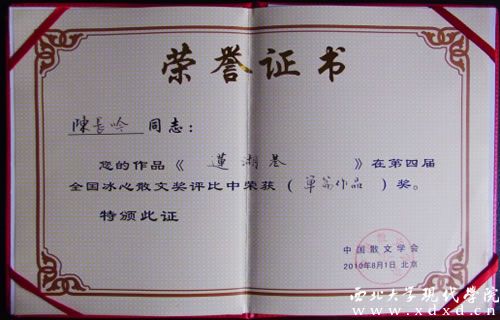 荣誉证书
陳長吟 同志：
您的作品《 蓮湖巷 》在第四届
全国冰心散文奖评比中荣获（单篇作品）奖。
特颁此证
中国散文学会
2010年8月1日 北京
西北大学现代学院
www.xdxd.cn